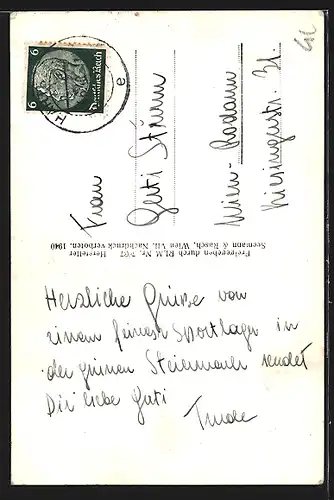 Herzliche Grüße von
einem feinen Sportlager in
der grünen Steiermark sendet
Dir liebe Guti
Trude
Frau
Guti Sturm
Wien - Rodaun
31.
Freigegeben durch RLM Nr. Hersteller
Seemann & Rasch, Wien VII. Nachdruck verboten. 1940
6 6
Deutsches Reich